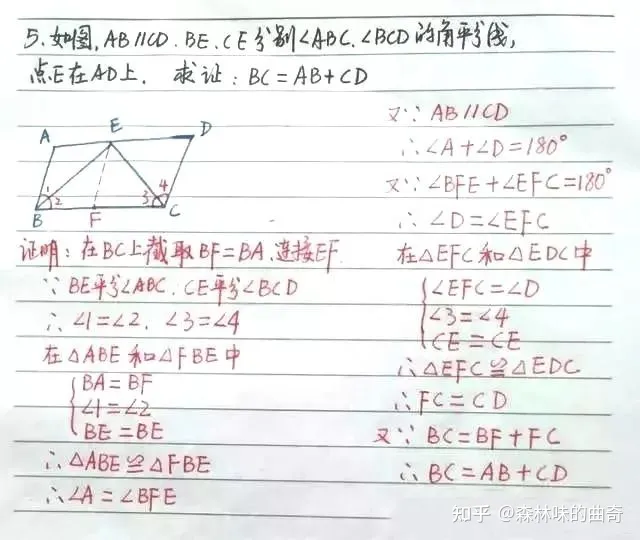 5.如图,AB∥CD.BE、CE分别∠ABC、∠BCD的角平分线,
点E在AD上. 求证:BC=AB+CD
A
E
D
1
2
3
4
B
F
C
证明:在BC上截取BF=BA,连接EF.
∵BE平分∠ABC、CE平分∠BCD
∴∠1=∠2、∠3=∠4
在△ABE和△FBE中
BA=BF
∠1=∠2
BE=BE
∴△ABE≌△FBE
∴∠A=∠BFE
又∵AB∥CD
∴∠A+∠D=180°
又∵∠BFE+∠EFC=180°
∴∠D=∠EFC
在△EFC和△EDC中
∠EFC=∠D
∠3=∠4
CE=CE
∴△EFC≌△EDC
∴FC=CD
又∵BC=BF+FC
∴BC=AB+CD
知乎 @森林味的曲奇